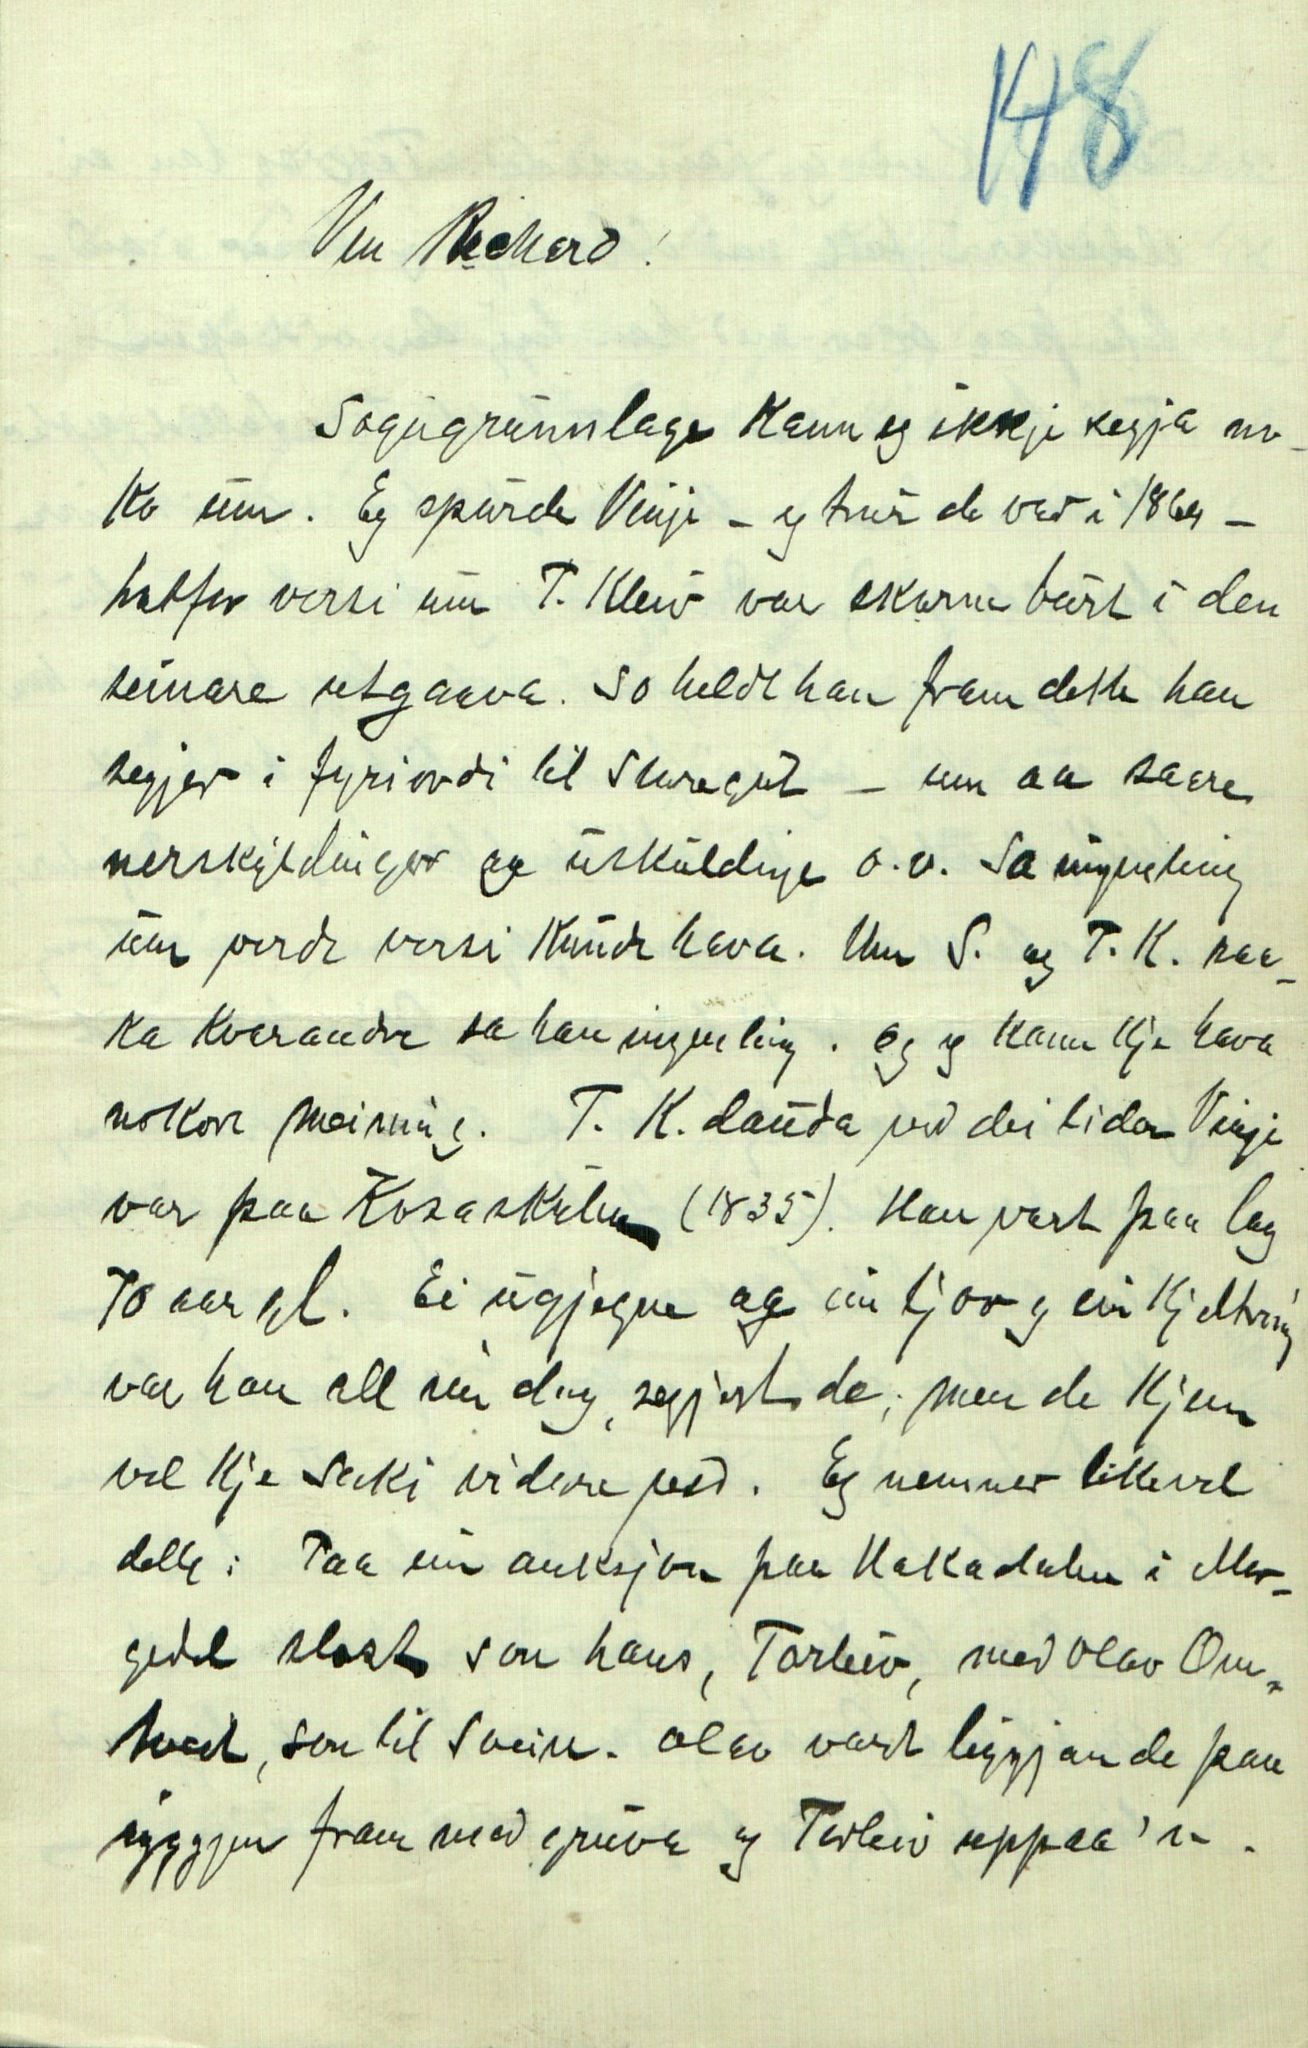 148
Ven Rickard!
Sogugrunnlage kann eg ikkje segja no-
ko um. Eg spurde Vinje – eg trur de var i 1864 –
hatfor versi um T. Kleiv var skorne burt i den
seinare utgaava. So heldt han fram dette han
segjer i fyriordi til Storegut – um aa saara
nerskyldingar aa uskuldige o.v. Sa ingenting
um verde versi kunde hava. Um S. og T. K. raa-
ka kvarandre sa han ingenting. Og eg kann kje hava
nokor meining. T. K. dauda ved dei tider Vinje
var paa Kosaskulen (1835). Han vart paa lag
70 aar gl. Ei ugjegne og ein tjov og ein kjeltring
var han all sin dag, segjest de; men de kjem
vel kje saki vidare ved. Eg nemner likevel
dette: Paa ein auksjon paa Kakadalen i Mor-
gedal slost son hans, Torleiv, med Olav Om-
tveit, son til Svein. Olav vart liggjande paa
ryggjen fram med gruva og Torleiv uppaa 'n.